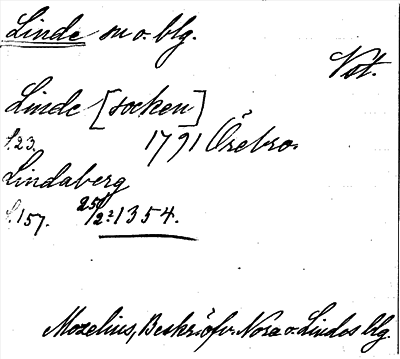 Linde sn o. blg.
Vst.
Linde [socken]
s. 23. 1791 Örebro.
Lindaberg
s. 157. 25/2 1354.
Mozelius, Beskr. öfv. Nora o. Lindes blg.